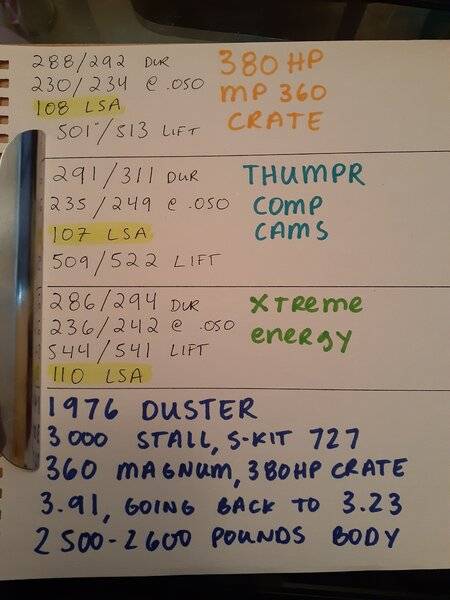 288/292 DUR
230/234 @ .050
108 LSA
501/513 LIFT
380 HP
MP 360
CRATE
291/311 DUR
235/249 @ .050
107 LSA
509/522 LIFT
THUMPR
COMP
CAMS
286/294 DUR
236/242 @ .050
544/541 LIFT
110 LSA
XTreme
energy
1976 DUSTER
3000 STALL, S-KIT 727
360 MAGNUM, 380HP CRATE
3.91, GOING BACK TO 3.23
2500-2600 POUNDS BODY